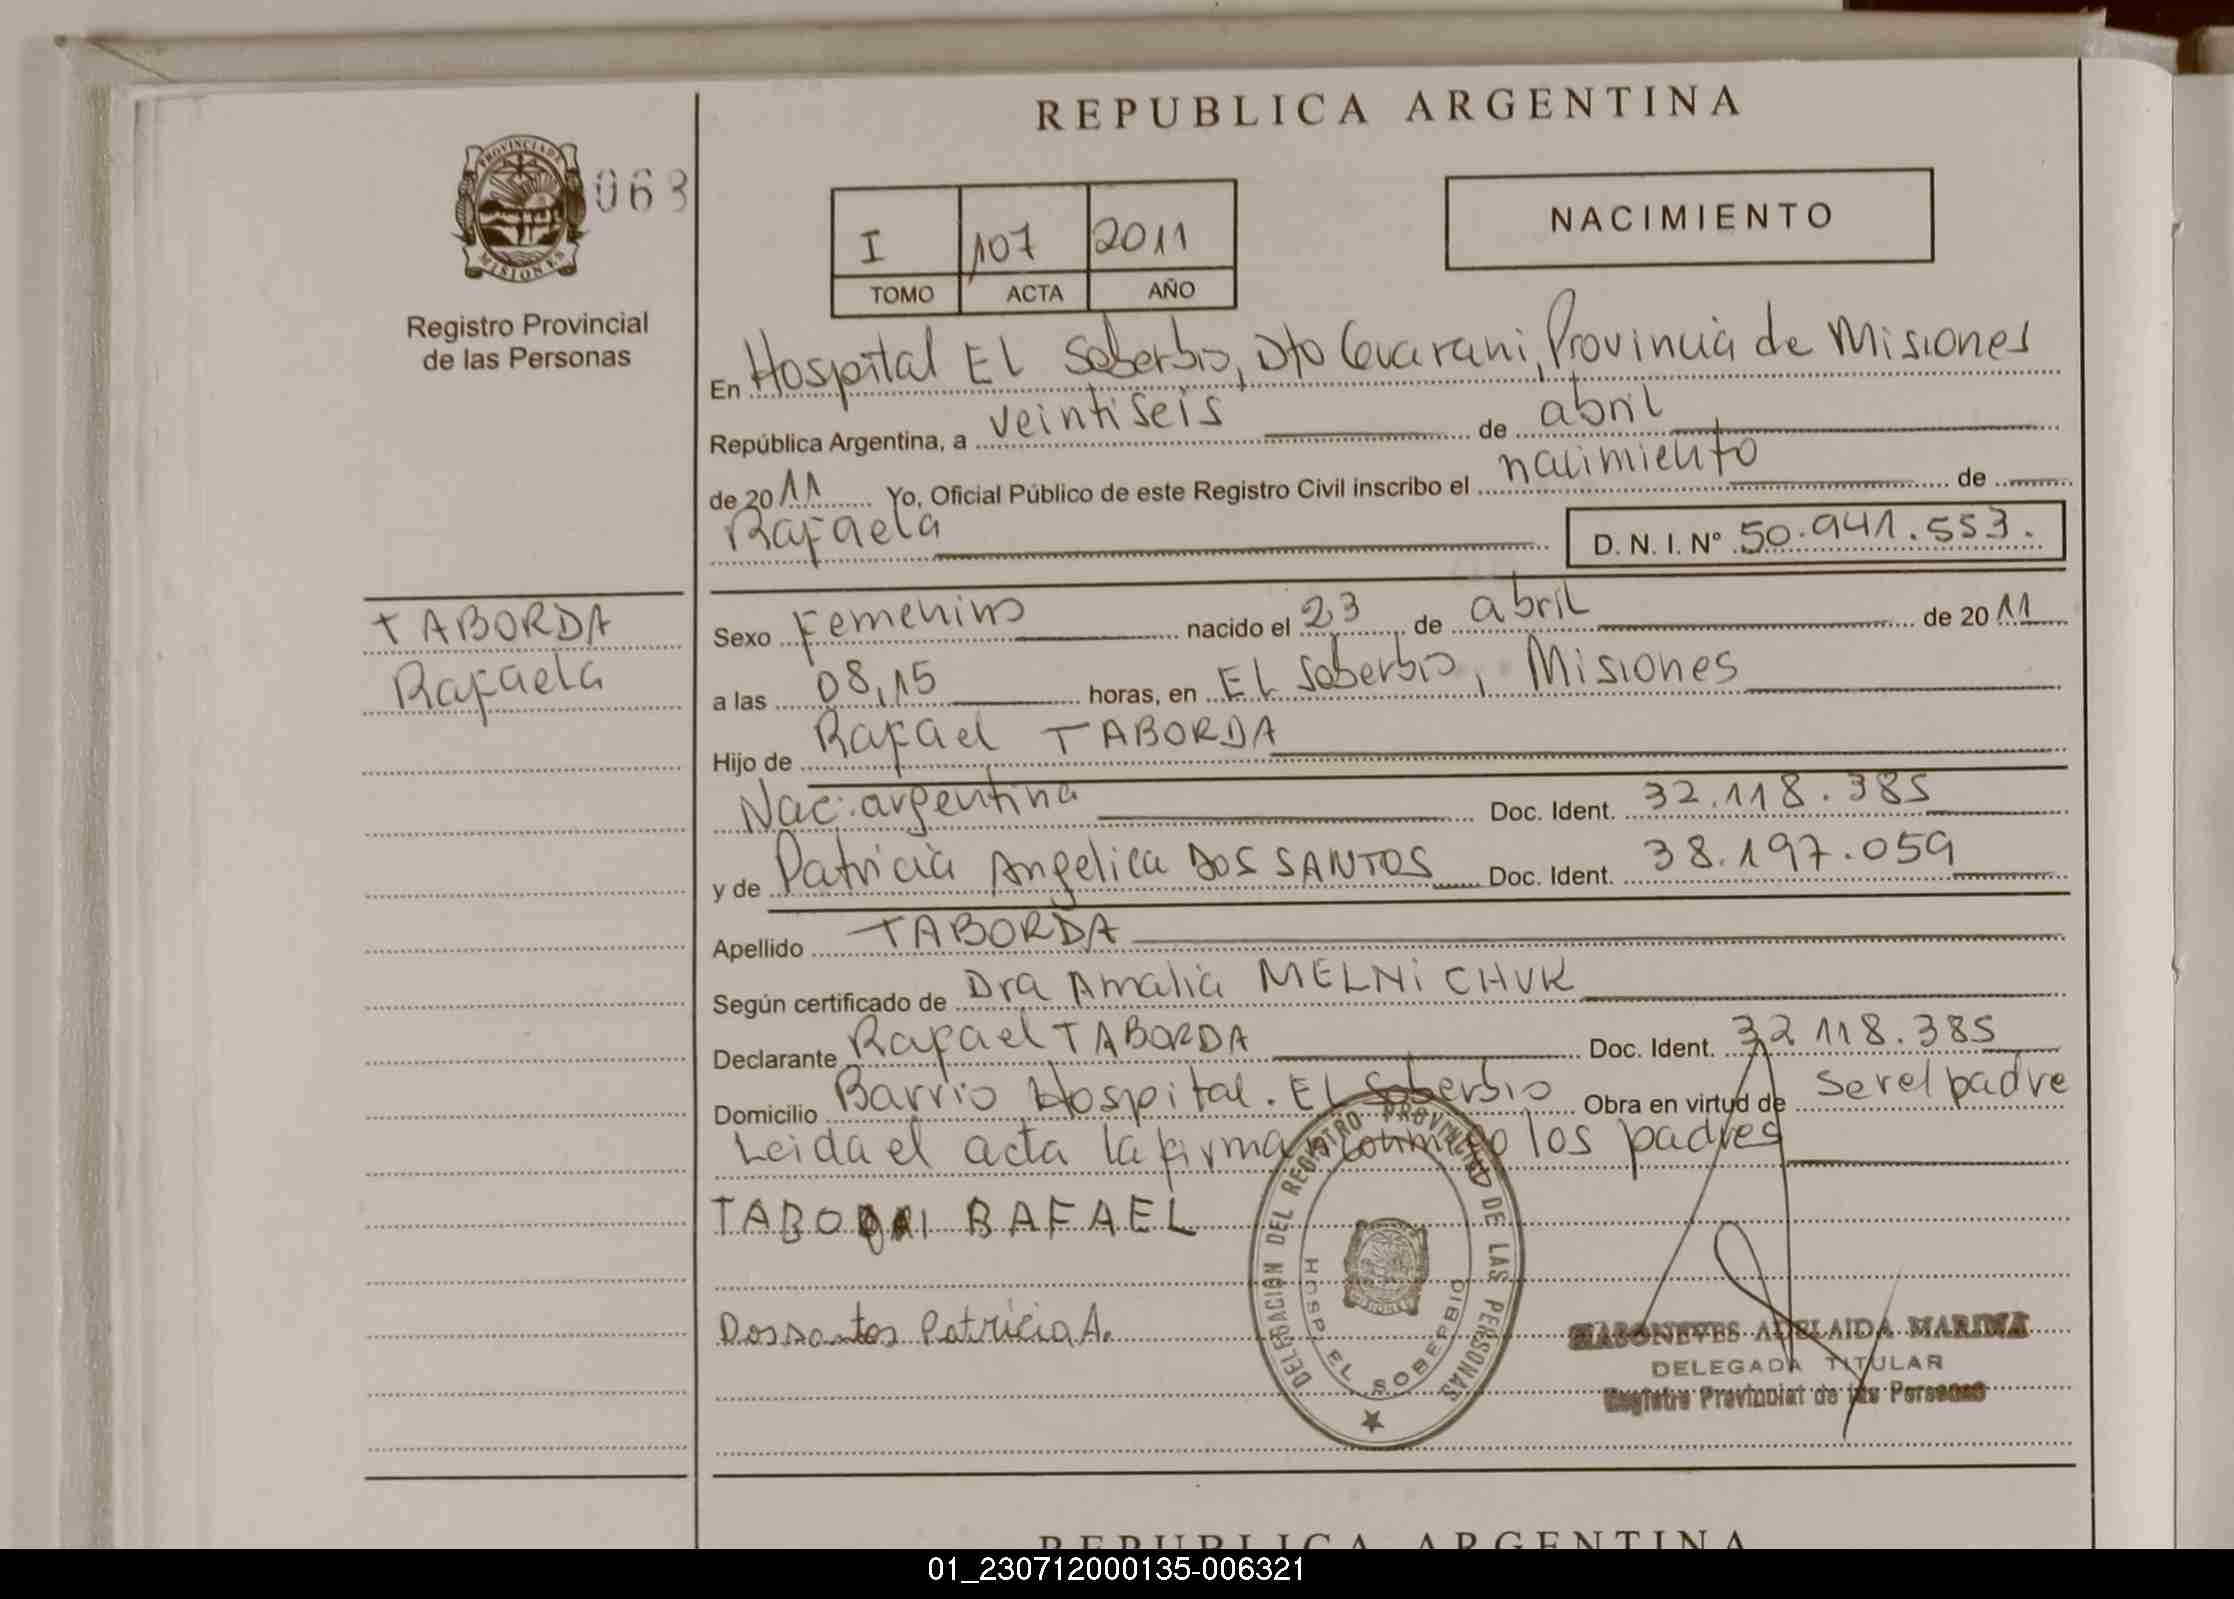 REPUBLICA ARGENTINA
PROVINCIA DE
MISIONES
063
Registro Provincial
de las Personas
I 107 2011
TOMO ACTA AÑO
NACIMIENTO
En Hospital El Soberbio, Dto Guarani, Provincia de Misiones
República Argentina, a veintiseis de abril
de 2011 Yo, Oficial Público de este Registro Civil inscribo el nacimiento de
Rafaela D. N. I. Nº 50.941.553.
TABORDA
Rafaela
Sexo Femenino nacido el 23 de abril de 2011
a las 08,15 horas, en El Soberbio, Misiones
Hijo de Rafael TABORDA
Nac: argentina Doc. Ident. 32.118.385
y de Patricia Angelica DOS SANTOS Doc. Ident. 38.197.059
Apellido TABORDA
Según certificado de Dra Amalia MELNICHUK
Declarante Rafael TABORDA Doc. Ident. 32 118.385
Domicilio Barrio Hospital. El Soberbio Obra en virtud de ser el padre
Leida el acta la firman conmigo los padres
RAFAEL
Dossantos Patricia A.
DELEGACION DEL REGISTRO PROVINCIAL DE LAS PERSONAS
HOSP. EL SOBERBIO
ADELAIDA MARINA
DELEGADA TITULAR
Registro Provincial de las Personas
REPUBLICA ARGENTINA
01_230712000135-006321